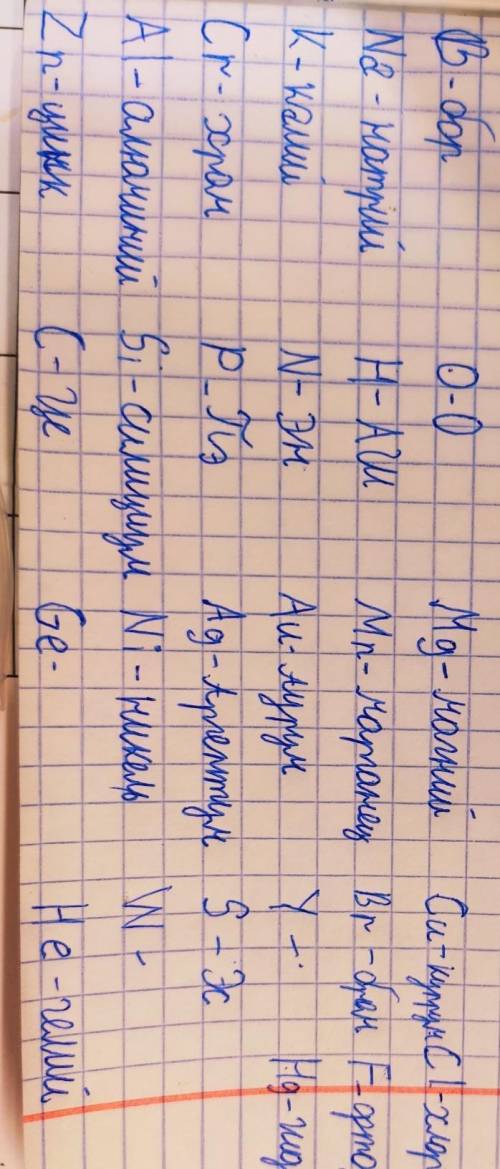 B - бор O - O Mg - магний Cu - купрум Cl - хлор
Na - натрий H - АШ Mn - марганец Br - бром F - фто
K - калий N - Эн Au - Аурум Y - Hg - гид
Cr - хром P - Пэ Ag - Аргентум S - Эс
Al - алюминий Si - силициум Ni - никель W -
Zn - цинк C - Це Ge - He - гелий